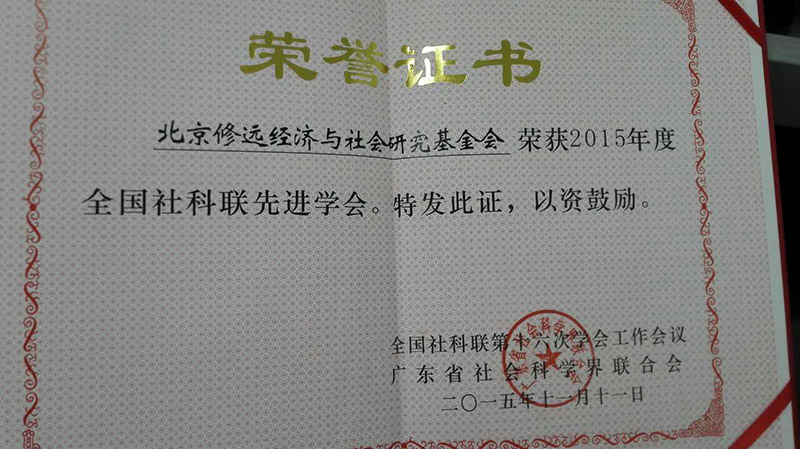 荣誉证书
北京修远经济与社会研究基金会 荣获2015年度
全国社科联先进学会。特发此证，以资鼓励。
全国社科联第十六次学会工作会议
广东省社会科学界联合会
二〇一五年十一月十一日
广东省社会科学界联合会